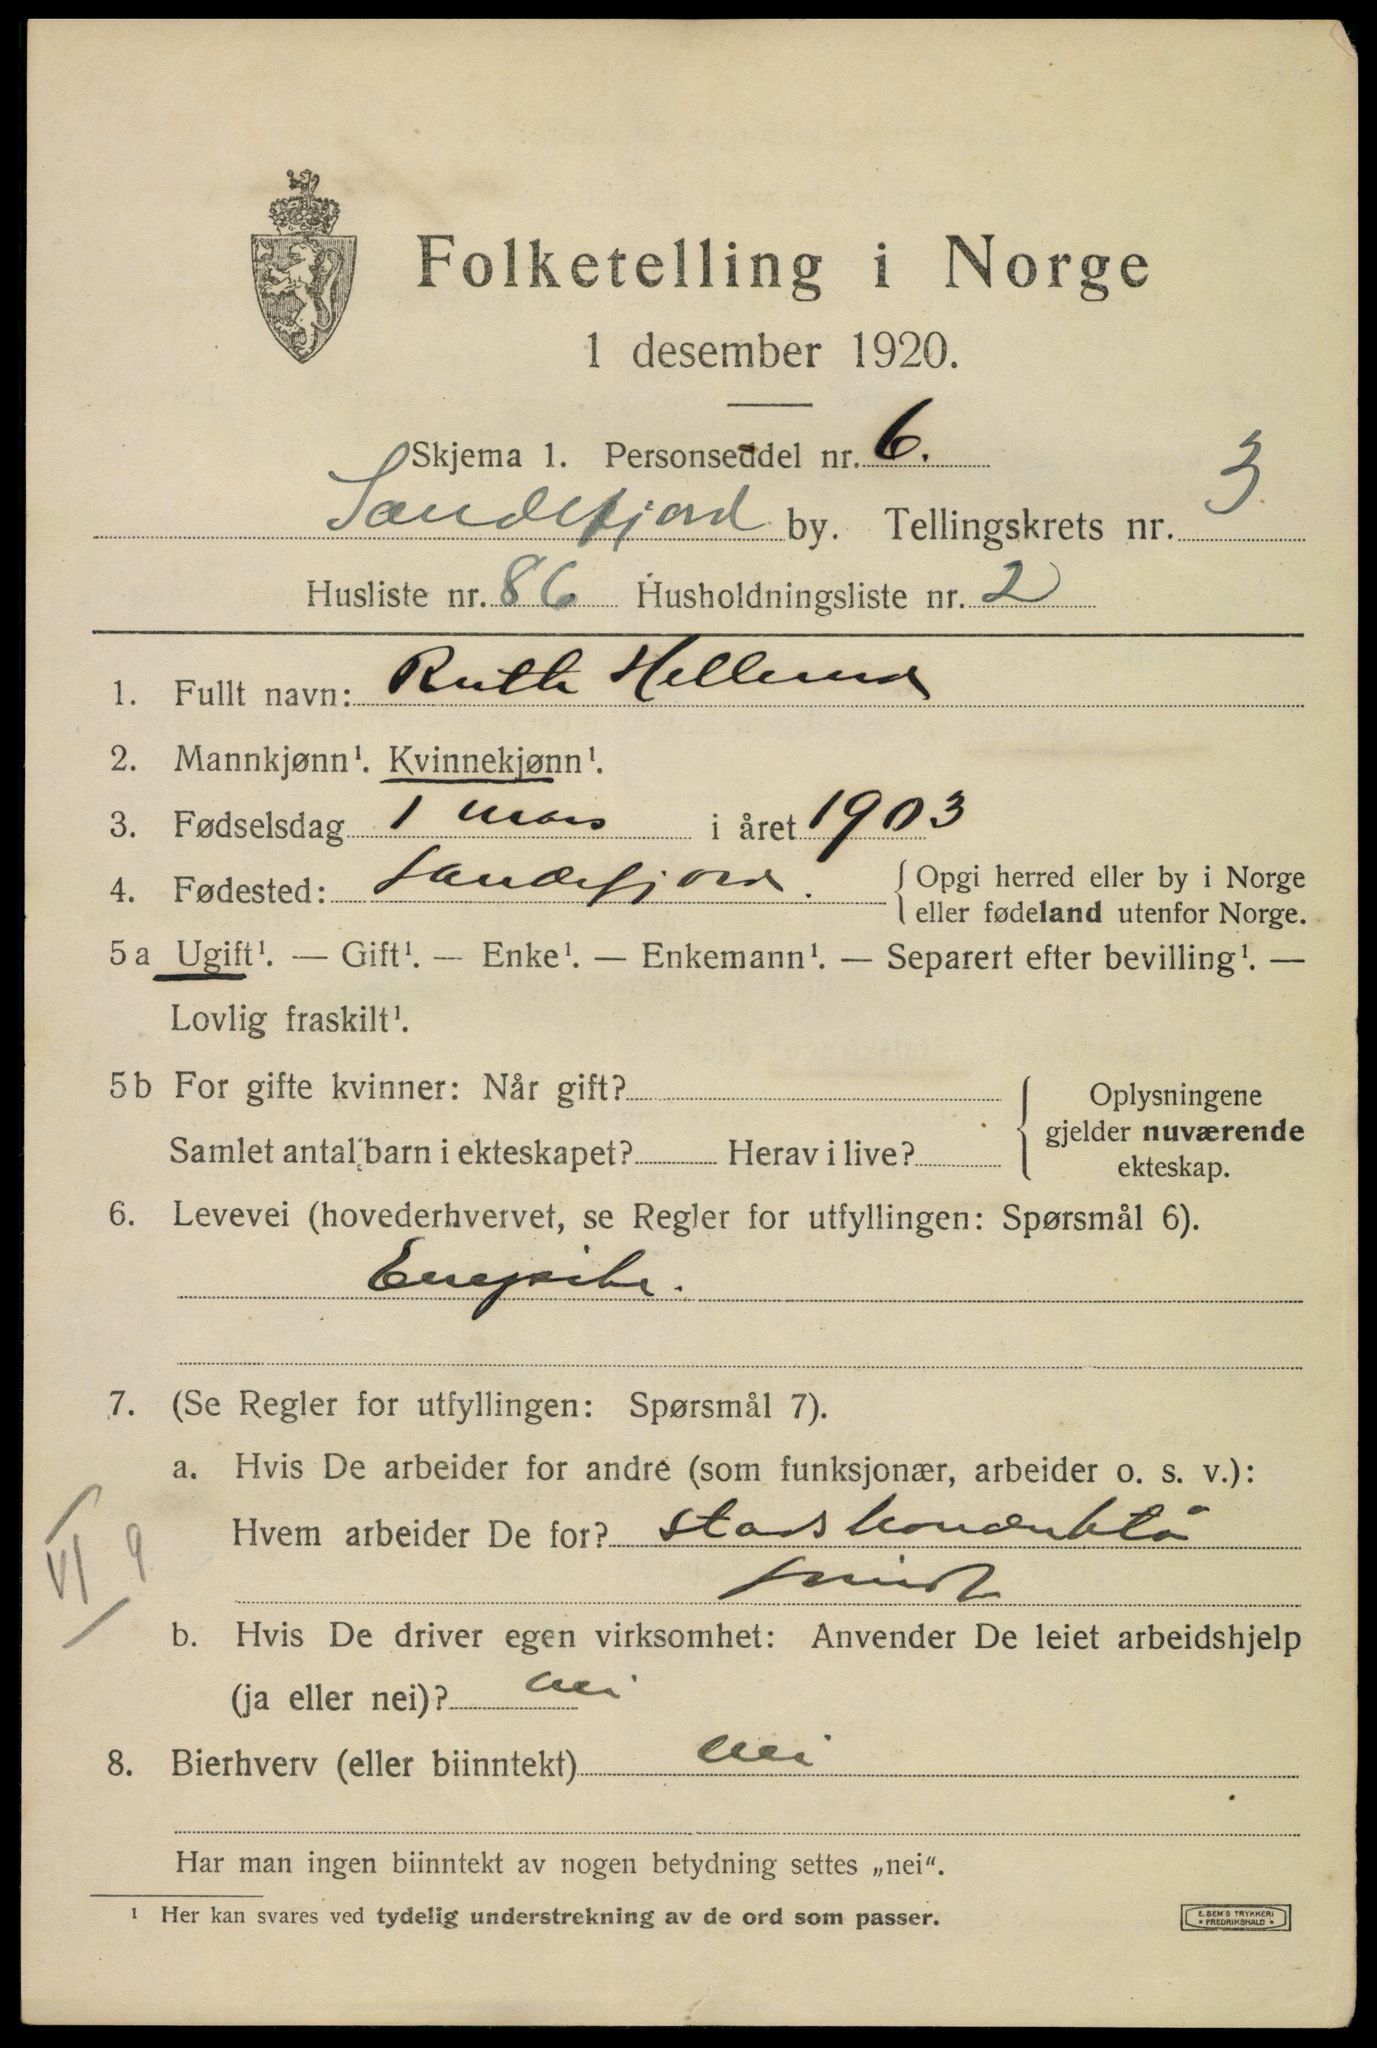 Folketelling i Norge
1 desember 1920.
Skjema 1. Personseddel nr. 6.
Sandefjord by. Tellingskrets nr. 3
Husliste nr. 86 Husholdningsliste nr. 2
1. Fullt navn: Ruth Hellund
2. Mannkjønn¹. Kvinnekjønn¹.
3. Fødselsdag 1 mars i året 1903
4. Fødested: Sandefjord. Opgi herred eller by i Norge
eller fødeland utenfor Norge.
5a Ugift¹. — Gift¹. — Enke¹. — Enkemann¹. — Separert efter bevilling¹. —
Lovlig fraskilt¹.
5b For gifte kvinner: Når gift?
Samlet antal barn i ekteskapet? Herav i live?
Oplysningene
gjelder nuværende
ekteskap.
6. Levevei (hovederhvervet, se Regler for utfyllingen: Spørsmål 6).
7. (Se Regler for utfyllingen: Spørsmål 7).
a. Hvis De arbeider for andre (som funksjonær, arbeider o. s. v.):
Hvem arbeider De for? stadskonduktø
VI 9
b. Hvis De driver egen virksomhet: Anvender De leiet arbeidshjelp
(ja eller nei)? nei
8. Bierhverv (eller biinntekt) nei
Har man ingen biinntekt av nogen betydning settes „nei“.
¹ Her kan svares ved tydelig understrekning av de ord som passer.
E. SEM'S TRYKKERI
FREDRIKSHALD